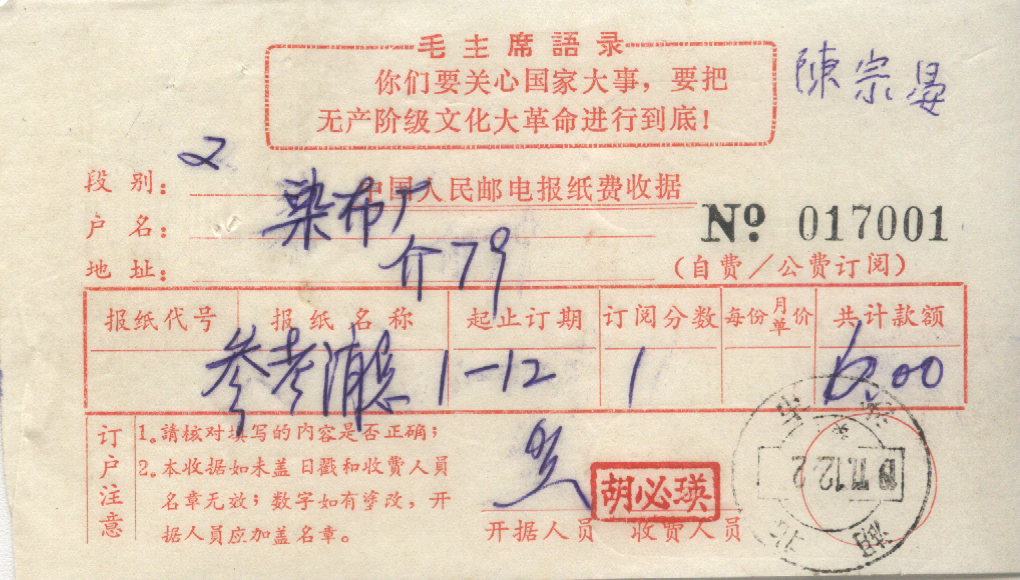 毛主席語录
你们要关心国家大事，要把
无产阶级文化大革命进行到底！
陳宗晏
段别： 又
中国人民邮电报纸费收据
户名： 染布厂
№ 017001
地址： 介79
（自费／公费订阅）
报纸代号 报纸名称 起止订期 订阅分数 每份月单价 共计款额
参考消息 1-12 1 6.00
订户注意
1.請核对填写的内容是否正确；
2.本收据如未盖日戳和收费人员
名章无效；数字如有塗改，开
据人员应加盖名章。
胡必瑛
开据人员 收费人员
12.2
湖北